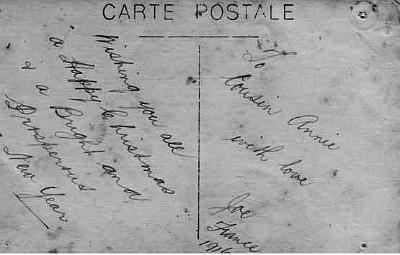 CARTE POSTALE
Wishing you all
a Happy Christmas
& a Bright and
Prosperous
New Year
To
Cousin Annie
with love
Joe
France
1916